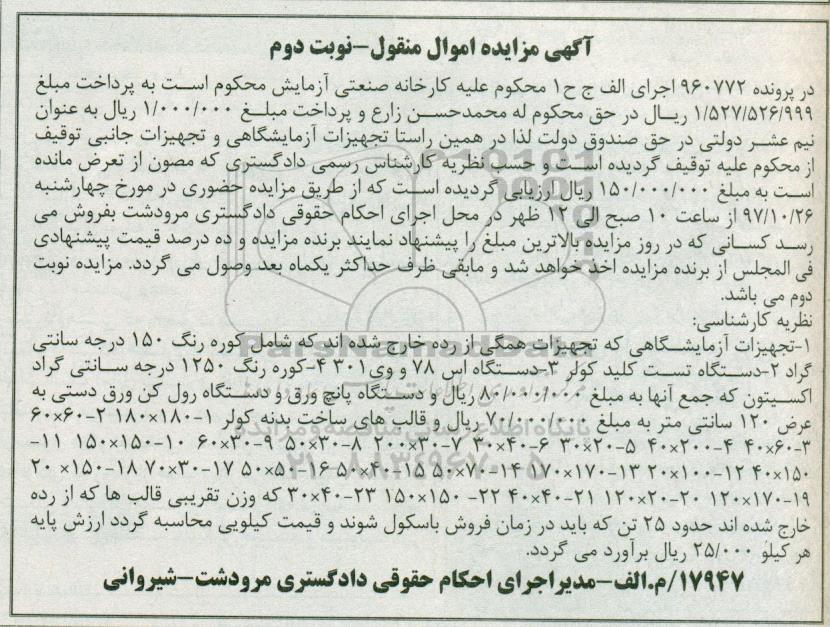 آگهی مزایده اموال منقول-نوبت دوم
در پرونده ۹۶۰۷۷۲ اجرای الف ج ح۱ محکوم علیه کارخانه صنعتی آزمایش محکوم است به پرداخت مبلغ
۱/۵۲۷/۵۲۶/۹۹۹ ریال در حق محکوم له محمدحسن زارع و پرداخت مبلغ ۱/۰۰۰/۰۰۰ ریال به عنوان
نیم عشر دولتی در حق صندوق دولت لذا در همین راستا تجهیزات آزمایشگاهی و تجهیزات جانبی توقیف
از محکوم علیه توقیف گردیده است و حسب نظریه کارشناس رسمی دادگستری که مصون از تعرض مانده
است به مبلغ ۱۵۰/۰۰۰/۰۰۰ ریال ارزیابی گردیده است که از طریق مزایده حضوری در مورخ چهارشنبه
۹۷/۱۰/۲۶ از ساعت ۱۰ صبح الی ۱۲ ظهر در محل اجرای احکام حقوقی دادگستری مرودشت بفروش می
رسد کسانی که در روز مزایده بالاترین مبلغ را پیشنهاد نمایند برنده مزایده و ده درصد قیمت پیشنهادی
فی المجلس از برنده مزایده اخذ خواهد شد و مابقی ظرف حداکثر یکماه بعد وصول می گردد. مزایده نوبت
دوم می باشد.
نظریه کارشناسی:
۱-تجهیزات آزمایشگاهی که تجهیزات همگی از رده خارج شده اند که شامل کوره رنگ ۱۵۰ درجه سانتی
گراد ۲-دستگاه تست کلید کولر ۳-دستگاه اس ۷۸ و وی۳۰۱ ۴-کوره رنگ ۱۲۵۰ درجه سانتی گراد
اکسیتون که جمع آنها به مبلغ ۸۰/۰۰۰/۰۰۰ ریال و دستگاه پانچ ورق و دستگاه رول کن ورق دستی به
عرض ۱۲۰ سانتی متر به مبلغ ۷۰/۰۰۰/۰۰۰ ریال و قالب های ساخت بدنه کولر ۱-۱۸۰×۱۸۰ ۲-۶۰×۶۰
۳-۶۰×۴۰ ۴-۲۰۰×۴۰ ۵-۲۰×۳۰ ۶-۴۰×۳۰ ۷-۳۰×۲۰۰ ۸-۳۰×۵۰ ۹-۳۰×۶۰ ۱۰-۱۵۰×۱۵۰ ۱۱-
۱۵۰×۴۰ ۱۲-۱۰۰×۲۰ ۱۳-۱۷۰×۱۷۰ ۱۴-۷۰×۵۰ ۱۵-۴۰×۵۰ ۱۶-۵۰×۵۰ ۱۷-۳۰×۷۰ ۱۸-۱۵۰× ۲۰
۱۹-۱۷۰×۱۲۰ ۲۰-۲۰×۱۲۰ ۲۱-۴۰×۴۰ ۲۲- ۱۵۰×۱۵۰ ۲۳-۴۰×۳۰ که وزن تقریبی قالب ها که از رده
خارج شده اند حدود ۲۵ تن که باید در زمان فروش باسکول شوند و قیمت کیلویی محاسبه گردد ارزش پایه
هر کیلو ۲۵/۰۰۰ ریال برآورد می گردد.
۱۷۹۴۷/م.الف-مدیراجرای احکام حقوقی دادگستری مرودشت-شیروانی
ParsNamadData
پایگاه اطلاع رسانی مناقصه و مزایده
۰۲۱-۸۸۳۴۹۶۷۰-۵